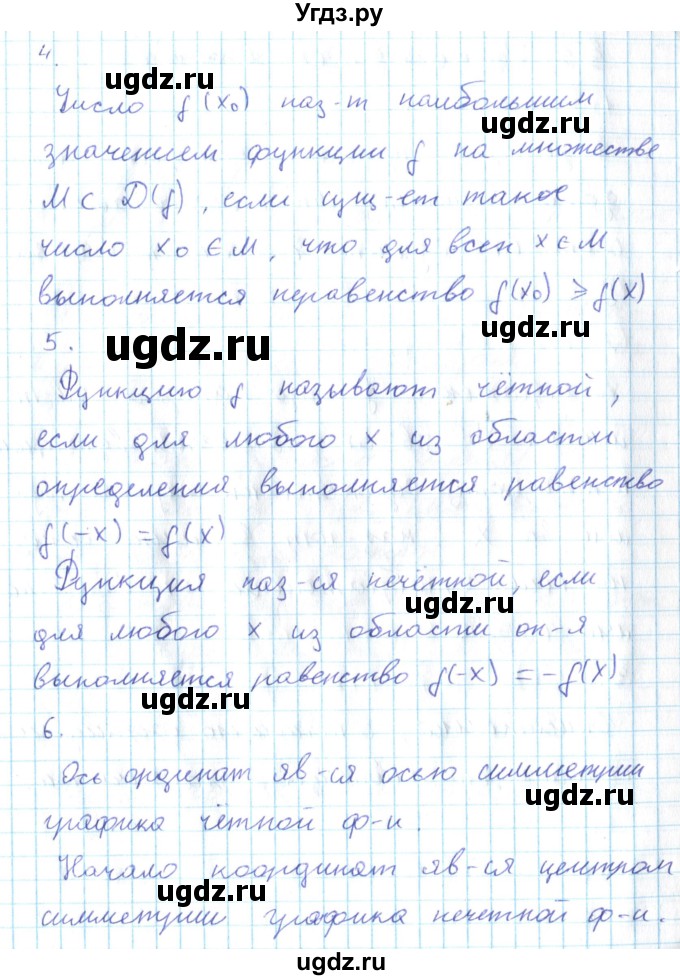 Угдз.ру
4.
Число f(x₀) наз-т наибольшим
значением функции f на множестве
M ⊂ D(f), если сущ-ет такое
число x₀ ∈ M, что для всех x ∈ M
выполняется неравенство f(x₀) ⩾ f(x)
5.
Функцию f называют чётной,
если для любого x из области
определения выполняется равенство
f(-x) = f(x)
Функция наз-ся нечётной, если
для любого x из области оп-я
выполняется равенство f(-x) = -f(x)
6.
Ось ординат яв-ся осью симметрии
графика чётной ф-и.
Начало координат яв-ся центром
симметрии графика нечетной ф-и.
ugdz.ru
ugdz.ru
ugdz.ru
ugdz.ru
ugdz.ru
ugdz.ru
ugdz.ru
ugdz.ru
ugdz.ru
ugdz.ru